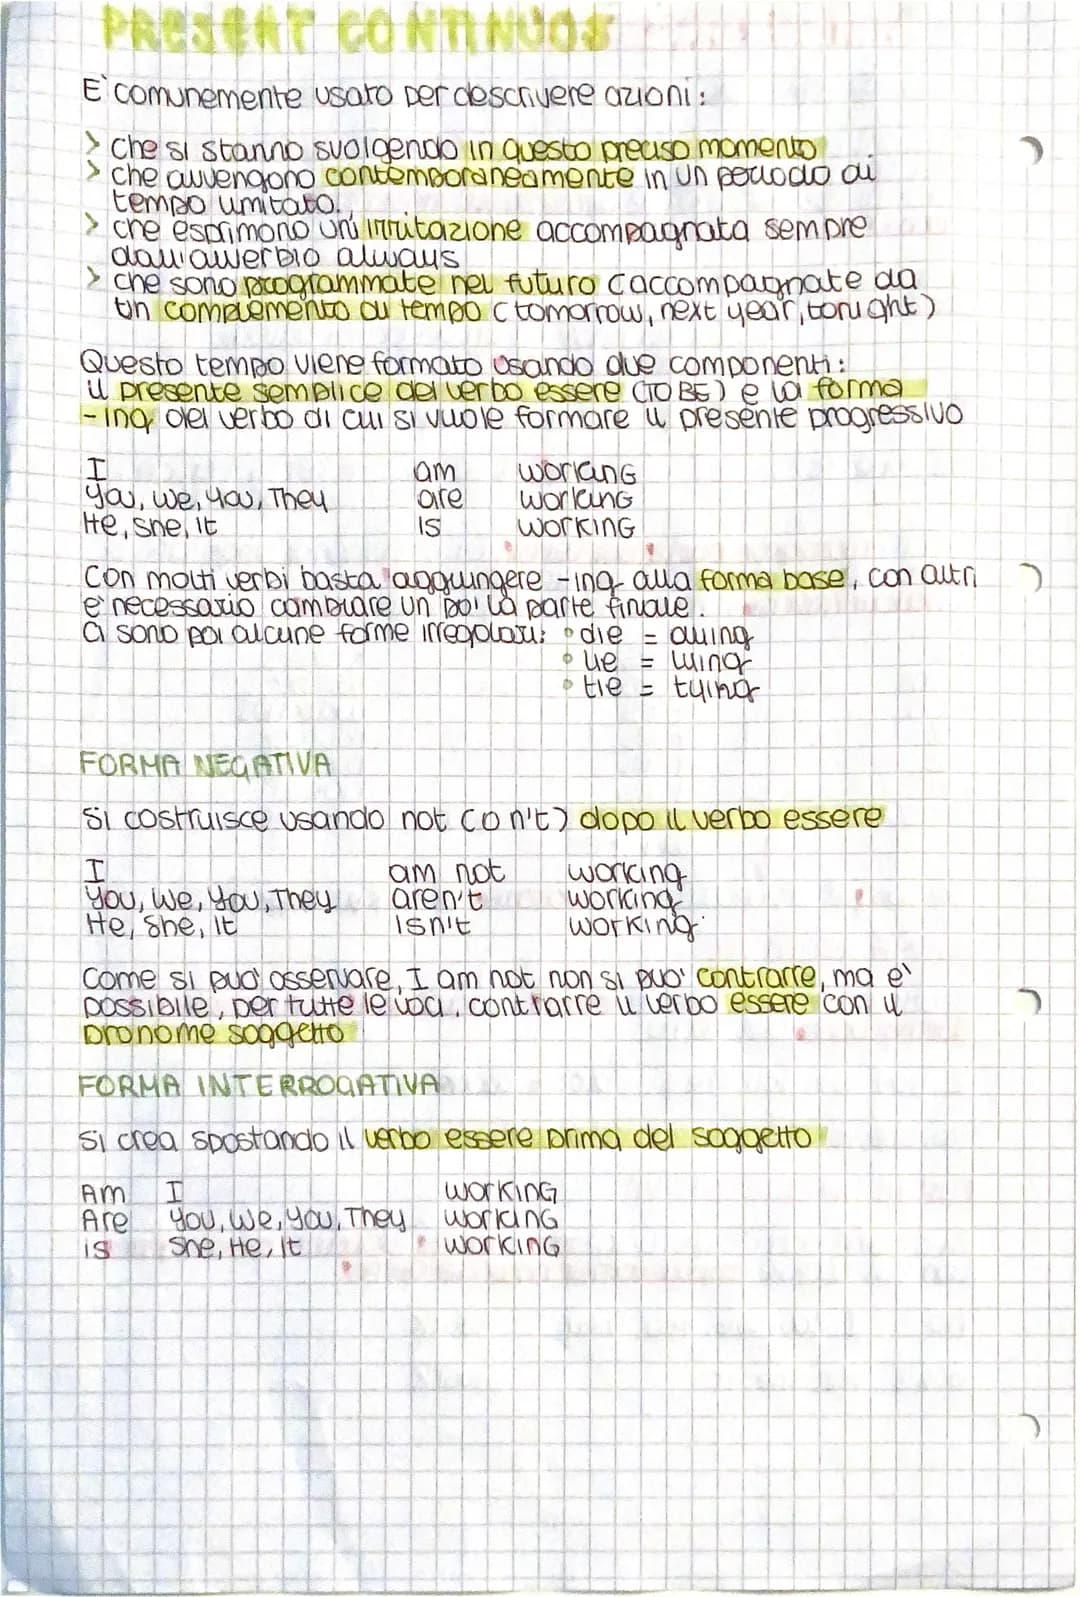 PRESENT CONTINUOS
E' comunemente usato per descrivere azioni:
> che si stanno svolgendo in questo preciso momento
> che avvengono contemporaneamente in un periodo di
tempo limitato.
> che esprimono un'irritazione accompagnata sempre
dall'avverbio always
> che sono programmate nel futuro (accompagnate da
un complemento di tempo (tomorrow, next year, tonight)
Questo tempo viene formato usando due componenti:
il presente semplice del verbo essere (TO BE) e la forma
-ing del verbo di cui si vuole formare il presente progressivo
I am workinG
You, we, you, They are workinG
He, She, it is workinG
Con molti verbi basta aggiungere -ing alla forma base, con altri
e' necessario cambiare un po' la parte finale.
Ci sono poi alcune forme irregolari: • die = dying
• lie = lying
• tie = tying
FORMA NEGATIVA
Si costruisce usando not (o n't) dopo il verbo essere
I am not working
You, we, You, They aren't working
He, She, it isn't working.
Come si puo' osservare, I am not non si puo' contrarre, ma e'
possibile, per tutte le voci, contrarre il verbo essere con il
pronome soggetto
FORMA INTERROGATIVA
Si crea spostando il verbo essere prima del soggetto
Am I workinG
Are You, we, you, They workinG
is She, He, it workinG